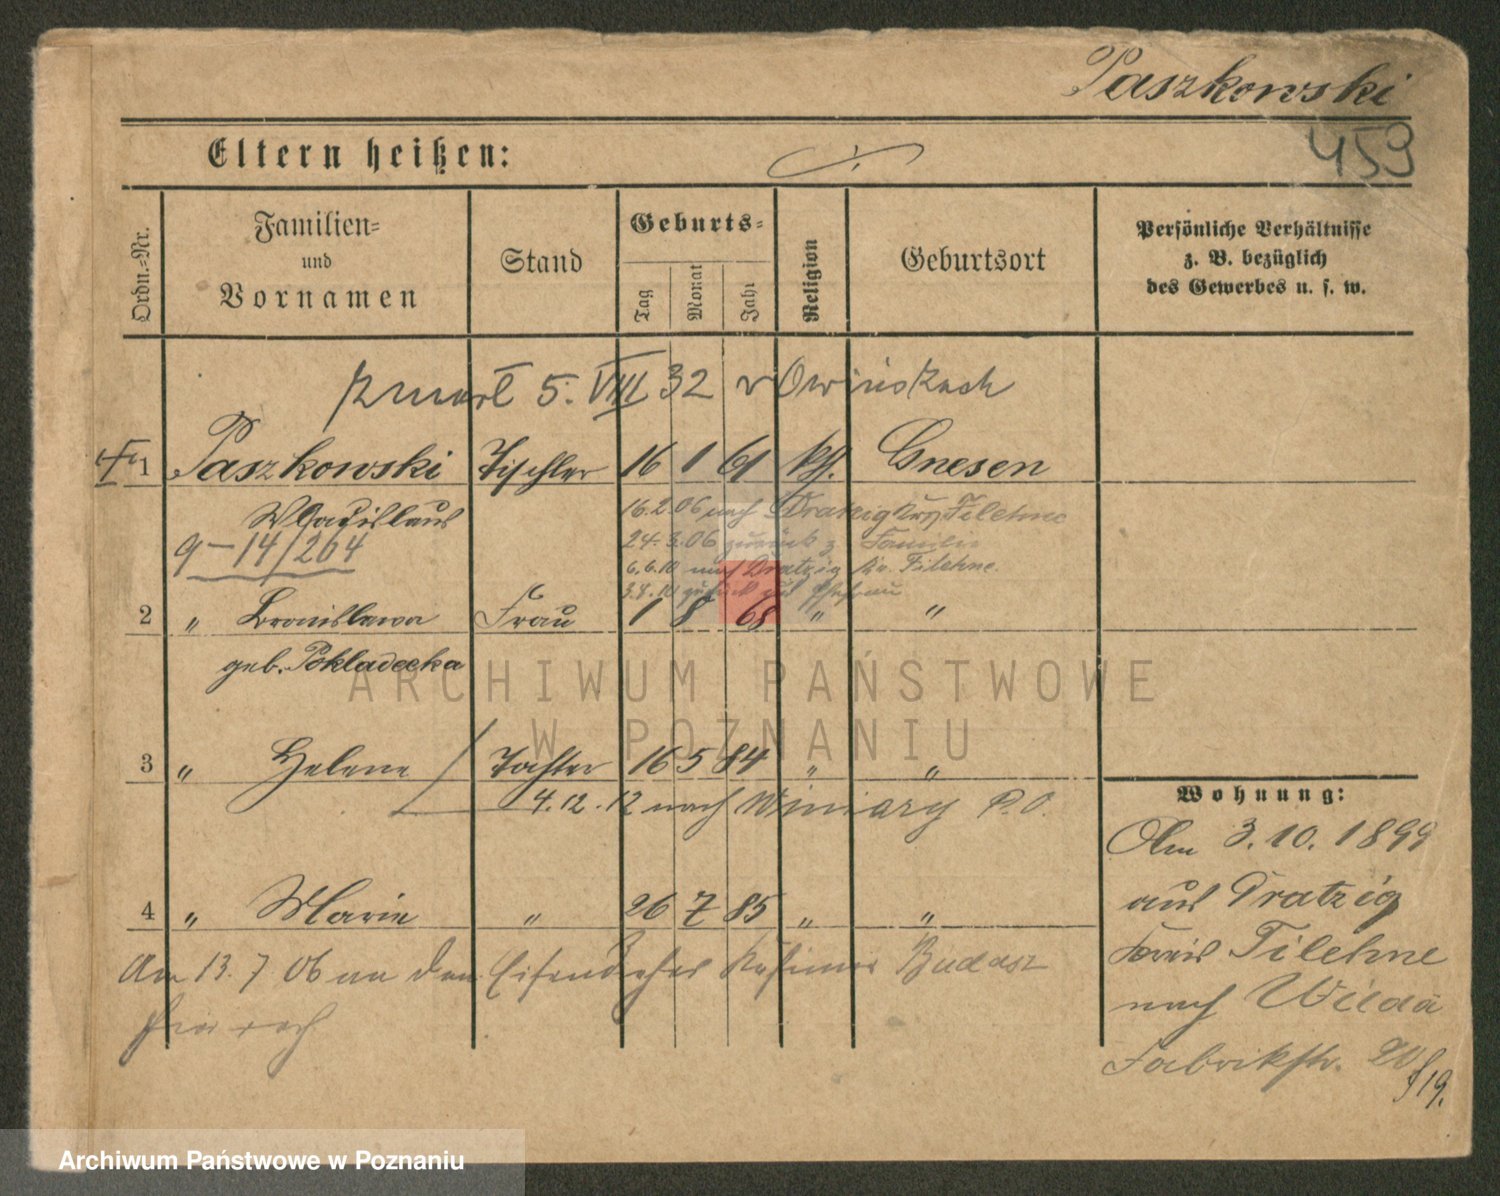 Paszkowski
459
Eltern heißen:
Ordn.=Nr.
Familien=
und
Vornamen
Stand
Geburts=
Tag
Monat
Jahr
Religion
Geburtsort
Persönliche Verhältnisse
z. B. bezüglich
des Gewerbes u. s. w.
zmarł 5. VIII 32 w Owińskach
1 Paszkowski Tischler 16 1 61 kh. Gnesen
Wladislaus
16.2.06 nach Dratzig Krs Filehne
9-14/264
24.3.06 zurück z Familie
6.6.10 nach Dratzig Kr. Filehne.
zurück zur Ehefrau
2 " Bronislawa Frau 1 8 68 " "
geb. Pokladecka
ARCHIWUM PAŃSTWOWE
W POZNANIU
3 " Helene Tochter 16 5 84 " "
4.12.12 nach Winiary P.O.
4 " Marie " 26 7 85 " "
Am 13.7 06 an den Eisendreher Kasimir Budasz
Wohnung:
Am 3.10.1899
aus Dratzig
Kreis Filehne
nach Wilda
Fabrikstr. 20
19.
Archiwum Państwowe w Poznaniu